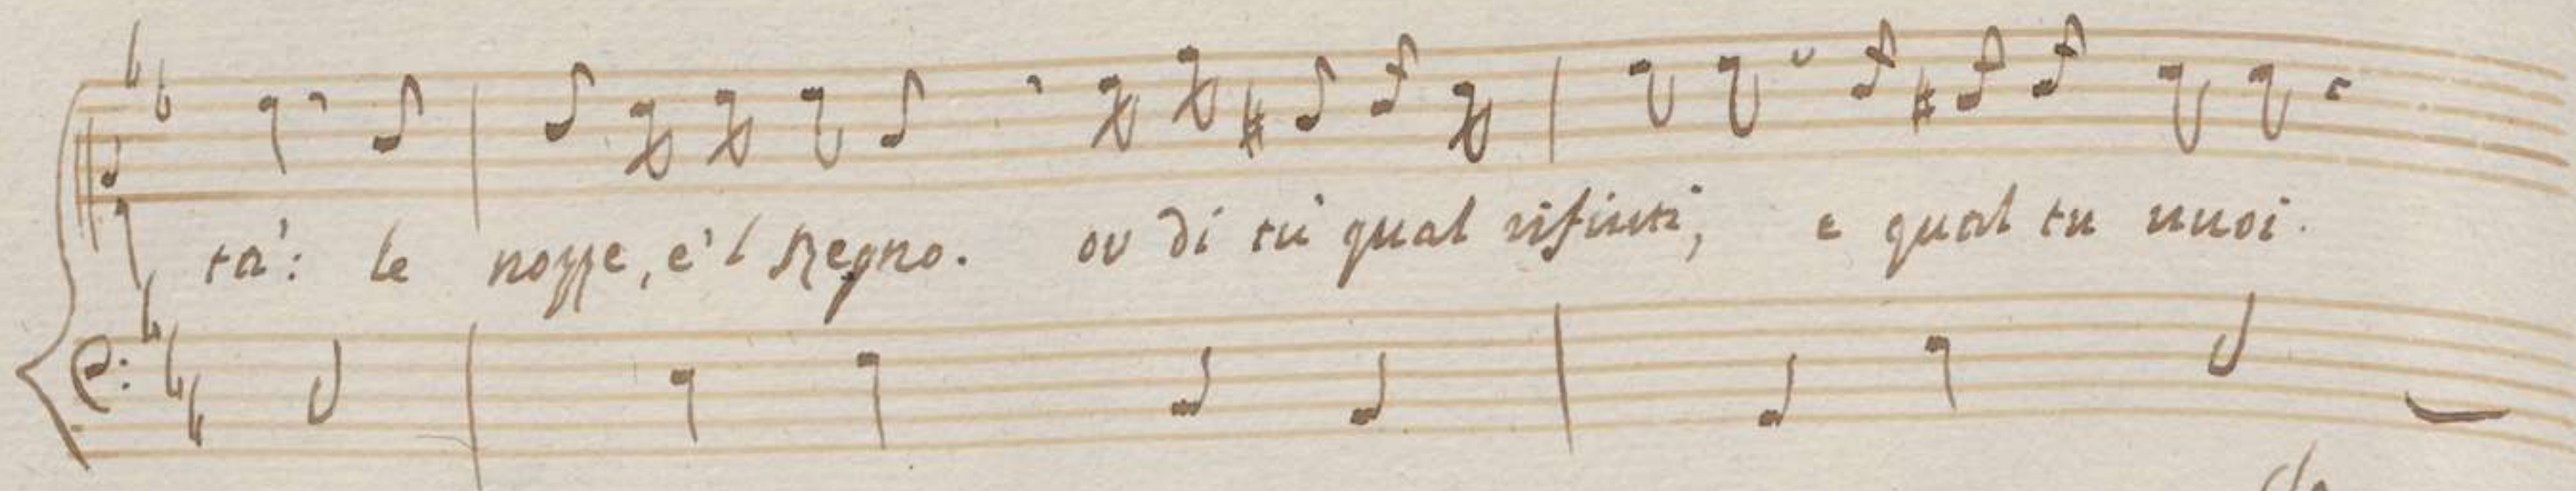 ta': le nozze, e'l Regno. or di tu qual rifiuti, e qual tu vuoi.